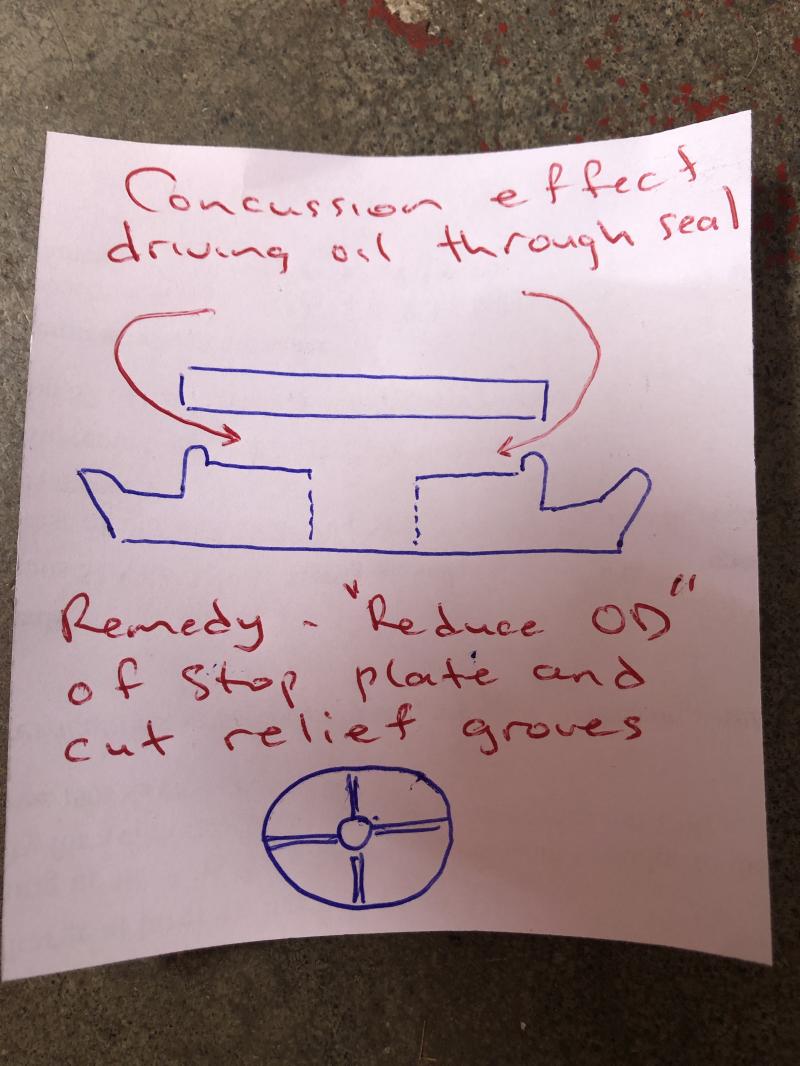 Concussion effect
driving oil through seal
Remedy - "Reduce OD"
of stop plate and
cut relief groves